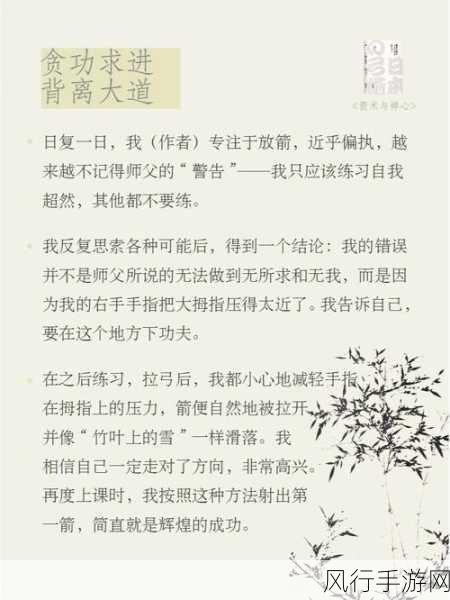 贪功求进
背离大道
《箭术与禅心》
日复一日，我（作者）专注于放箭，近乎偏执，越
来越不记得师父的“警告”——我只应该练习自我
超然，其他都不要练。
我反复思索各种可能后，得到一个结论：我的错误
并不是师父所说的无法做到无所求和无我，而是因
为我的右手手指把大拇指压得太近了。我告诉自己，
要在这个地方下功夫。
在之后练习，拉弓后，我都小心地减轻手指
在拇指上的压力，箭便自然地被拉开，
并像“竹叶上的雪”一样滑落。我
相信自己一定走对了方向，非常高兴。
再度上课时，我按照这种方法射出第
一箭，简直就是辉煌的成功。
风行手游网